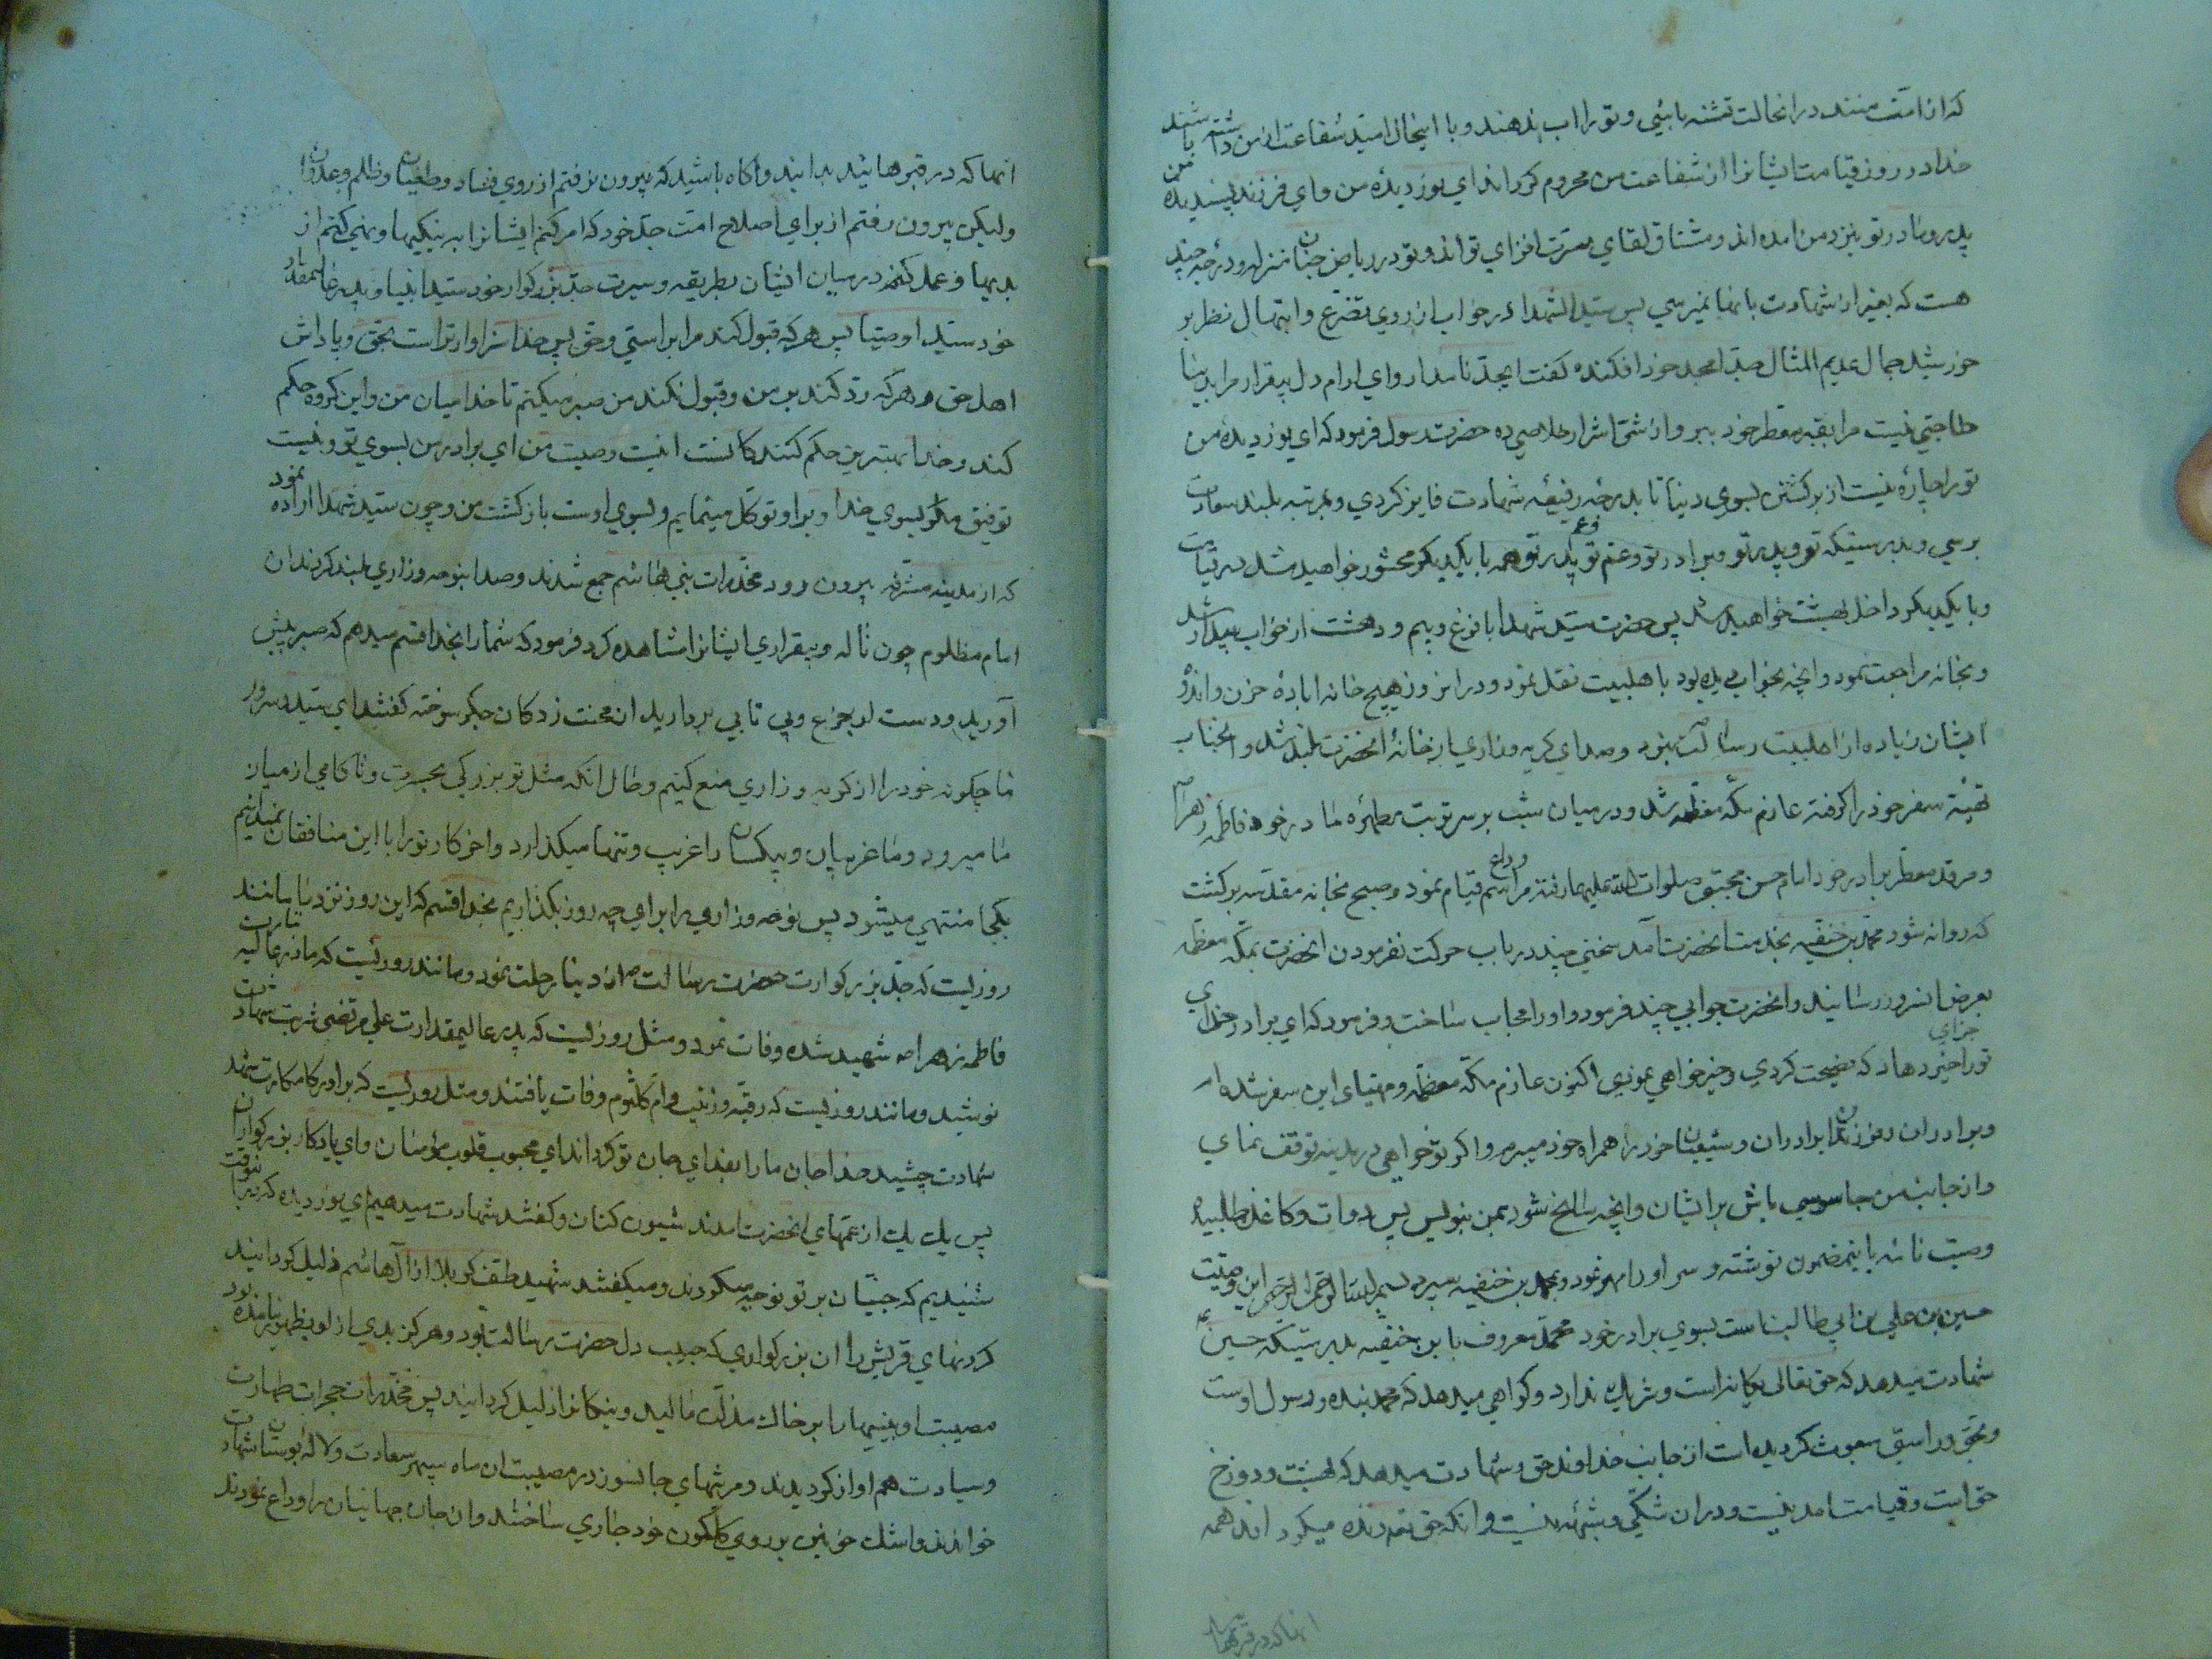 که از امت منند در انحالت تشنه باشی و تو را اب ندهند و با اینحال امید شفاعت از من داشته باشند
خدا در روز قیامت ایشانرا از شفاعت من محروم کرداند ای نور دیده من و ای فرزند پسندیده من
پدر و مادر تو بنزد من امده اند و مشتاق لقای مسرت افزای تو اند و تو در ریاض جنان منزلها و درجه چند
هست که بغیر از شهادت بانها نمیرسی پس سید الشهدا در خواب از روی تضرع و ابتهال نظر بر
خورشید جمال عدیم المثال جد امجد خود افکنده کفت ایجد نامدار و ای ارام دل بیقرار مرا بدنیا
حاجتی نیست مرا بقبر معطر خود ببر و از شر اشرار خلاصی ده حضرت رسول فرمود که ای نور دیده من
تو را چاره نیست از برکشتن بسوی دنیا تا بدرجه رفیعه شهادت فایز کردی و بمرتبه بلند سعادت
برسی و بدرستیکه تو و پدر تو و برادر تو و عم تو و عم پدر تو همه با یکدیکر محشور خواهید شد در قیامت
و با یکدیکر داخل بهشت خواهید شد پس حضرت سید شهدا با فزع و بیم و دهشت از خواب بیدار شد
و بخانه مراجعت نمود و انچه بخواب دیده بود با هلبیت نقل نمود و در انروز هیچ خانه اباده حزن و اندوه
ایشان زیاده از اهلبیت رسالت ص نبود و صدای کریه و زاری از خانه انحضرت بلند شد و انجناب
تهیئه سفر خود را کرفته عازم مکه معظمه شد و در میان شب بر سر تربت مطهره مادر خود فاطمه زهرا ص
و مرقد معطر برادر خود امام حسن مجتبی صلوات الله علیهما رفته مراسم وداع قیام نمود و صبح بخانه مقدسه برکشت
که روانه شود محمد بن حنفیه بخدمت انحضرت آمد سخنی چند در باب حرکت نفرمودن انحضرت بمکه معظمه
بعرض انسرور رسانید و انحضرت جوابی چند فرمود و او را مجاب ساخت و فرمود که ای برادر خدای
تو را جزای خیر دهاد که نصیحت کردی و خیر خواهی نمودی اکنون عازم مکه معظمه و مهیای این سفر شده ام
و برادران و فرزندان برادران و شیعیان خود را همراه خود میبرم و اکر تو خواهی در مدینه توقف نمای
و از جانب من جاسوسی باش بر ایشان و انچه سانح شود بمن بنویس پس دوات و کاغذ طلبید
وصیت نامه باینمضمون نوشته و سر او را مهر نمود و بمحمد بن حنفیه سپرد بسم الله الرحمن الرحیم این وصیت
حسین بن علی بن ابی طالب است بسوی برادر خود محمد معروف بابن حنفیه بدرستیکه حسین ع
شهادت میدهد که حق تعالی یکانه است و شریک ندارد و کواهی میدهد که محمد بنده و رسول اوست
و بحق و راستی مبعوث کردیده است از جانب خداوند حق و شهادت میدهد که بهشت و دوزخ
حق است و قیامت امدنیست و در آن شکی و شبهه نیست و انکه حق تعالی زنده میکرداند همه
انها که در قبرهایند
انها که در قبرهایند بدانید و اکاه باشید که بیرون نرفتم از روی فساد و طغیان و ظلم و عدوان
ولیکن بیرون رفتم از برای اصلاح امت جد خود که امر کنم ایشانرا بر نیکیها و نهی کنم از
بدیها و عمل کنم در میان ایشان بطریقه و سیرت جد بزرکوار خود سید انبیا و پدر عالیمقدار
خود سید اوصیا پس هر که قبول کند مرا براستی و حق پس خدا سزاوارتر است بحق و پاداش
اهل حق و هر که رد کند بر من و قبول نکند من صبر میکنم تا خدا میان من و این کروه حکم
کند و خدا بهترین حکم کنندکانست اینست وصیت من ای برادر من بسوی تو و نیست
توفیق مکر بسوی خدا و بر او توکل مینمایم و بسوی اوست بازکشت من و چون سید شهدا اراده نمود
که از مدینه مشرفه بیرون رود مخدرات بنی هاشم جمع شدند و صدا بنوحه و زاری بلند کردند ان
امام مظلوم چون ناله و بیقراری ایشانرا مشاهده کرد فرمود که شما را بخدا قسم میدهم که صبر پیش
آورید و دست از جزع و بی تابی بردارید ان محنت زدکان جکر سوخته کفتند ای سید و سرور
ما چکونه خود را از کریه و زاری منع کنیم و حال انکه مثل تو بزرکی بحسرت و ناکامی از میان
ما میرود و ما غریبان و بیکسان را غریب و تنها میکذارد و اخر کار تو را با این منافقان نمیدانیم
بکجا منتهی میشود پس نوحه و زاری را برای چه روز بکذاریم بخدا قسم که این روز نزد ما مانند
روزیست که جد بزرکوارت حضرت رسالت ص از دنیا رحلت نمود و مانند روزیست که مادر عالیه تبارت
فاطمه زهرا ص شهید شده وفات نمود و مثل روزیست که پدر عالیمقدارت علی مرتضی شربت شهادت
نوشید و مانند روزیست که رقیه و زینب و ام کلثوم وفات یافتند و مثل روزیست که برادر کامکارت شهد
شهادت چشید خدا جان ما را بفدای جان تو کرداند ای محبوب قلوب مؤمنان و ای یادکار بزرکواران
پس یک یک از عمهای انحضرت امدند شیون کنان و کفتند شهادت میدهیم ای نور دیده که در اینوقت
شنیدیم که جنیان بر تو نوحه میکردند و میکفتند شهید طف کربلا از آل هاشم ذلیل کردانید
کردنهای قریش را ان بزرکواری که حبیب دل حضرت رسالت بود و هرکز بدی از او بظهور نیامده بود
مصیبت او بینیها را بر خاک مذلت مالید و نیکانرا ذلیل کردانید پس مخدرات حجرات طهارت
و سیادت هم اواز کردیدند و مرثیهای جانسوز در مصیبت ان ماه سپهر سعادت و لاله بوستان شهادت
خواندند و اشک خونین بر روی کلکون خود جاری ساختند و ان جان جهانیان را وداع نمودند